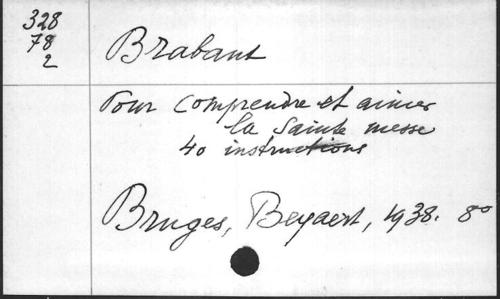 328
78
2
Brabant
Pour comprendre et aimer
la Sainte messe
40 instructions
Bruges, Beyaert, 1938. 8°